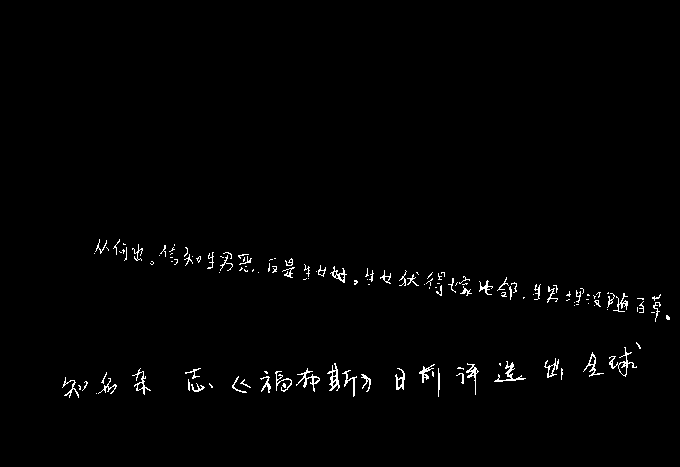 从何出。信知生男恶,反是生女好。生女犹得嫁比邻,生男埋没随百草。
知名杂志《福布斯》日前评选出全球